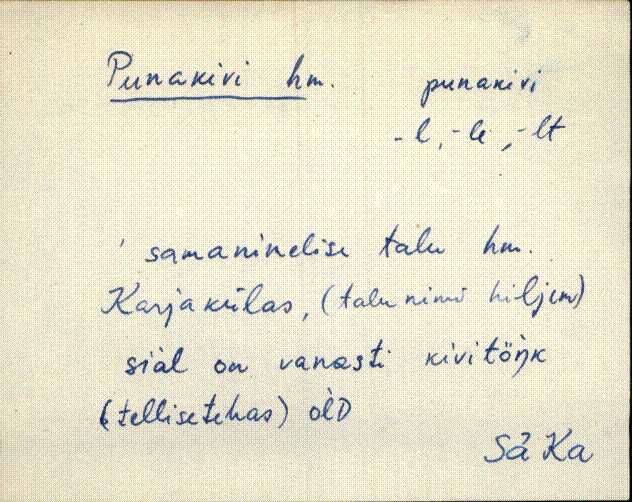 Punakivi hm.
punakivi
-l, -le, -lt
samanimelise talu hm.
Karjakülas, (talu nimi hiljem)
siàl on vanasti kivitöṅk
(tellisetehas) olD
Sä Ka